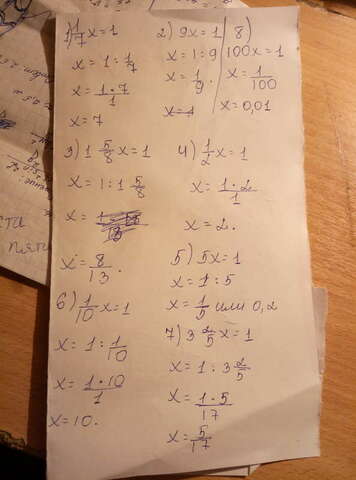 1) 1/7 x = 1
x = 1 : 1/7
x = 1·7/1
x = 7
2) 9x = 1
x = 1 : 9
x = 1/9.
8)
100x = 1
x = 1/100
x = 0,01
3) 1 5/8 x = 1
x = 1 : 1 5/8
x =
x = 8/13.
4) 1/2 x = 1
x = 1·2/1
x = 2.
5) 5x = 1
x = 1 : 5
x = 1/5 или 0,2
6) 1/10 x = 1
x = 1 : 1/10
x = 1·10/1
x = 10.
7) 3 2/5 x = 1
x = 1 : 3 2/5
x = 1·5/17
x = 5/17